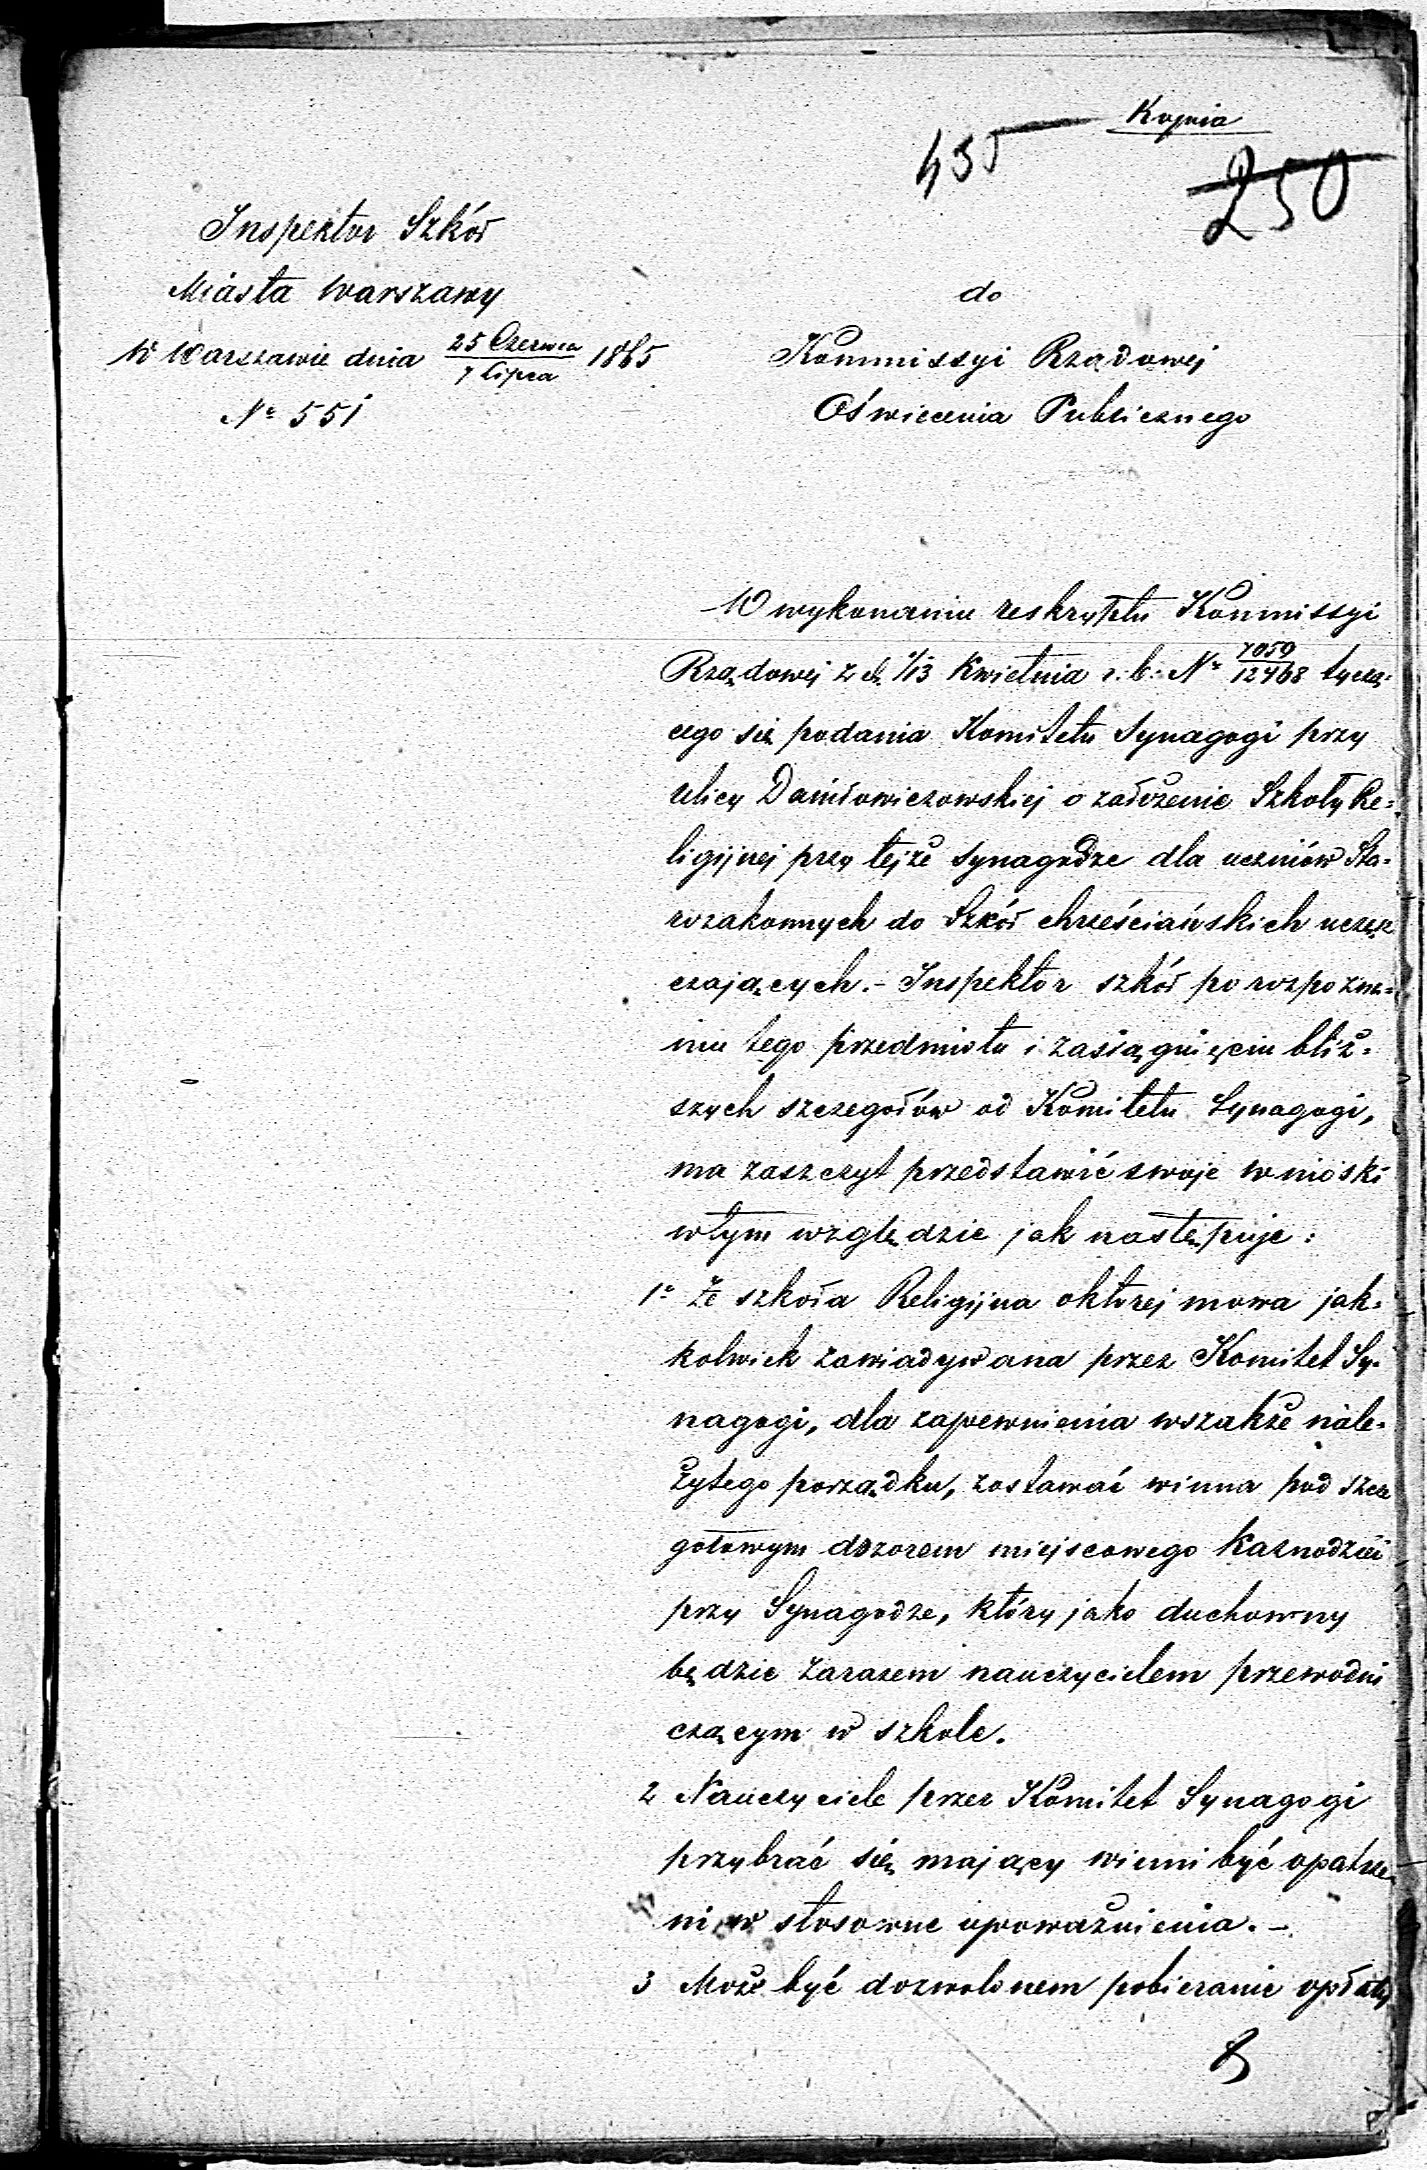 Kopia
435
250
Inspektor Szkół
Miasta Warszawy
W Warszawie dnia 25 Czerwca / 7 Lipca 1865
Nr 551
do
Kommissyi Rządowej
Oświecenia Publicznego
W wykonaniu reskryptu Kommissyi
Rządowej z d. 1/13 Kwietnia r. b: Nr 7059/12468 tyczą-
cego się podania Komitetu Synagogi przy
ulicy Daniłowiczowskiej o założenie Szkoły Re-
ligijnej przy tejże Synagodze dla uczniów Sta-
rozakonnych do Szkół chrześciańskich uczęsz
czających.- Inspektor szkół po rozpozna-
niu tego przedmiotu i zasiągnięciu bliż-
szych szczegołów od Komitetu Synagogi,
ma zaszczyt przedstawić swoje wnioski
w tym względzie jak następuje:
1o Że szkoła Religijna o której mowa jak-
kolwiek zawiadywana przez Komitet Sy-
nagogi, dla zapewnienia wszakże nale-
żytego porządku, zostawać winna pod szcze
gołowym dozorem miejscowego Kaznodziei
przy Synagodze, który jako duchowny
będzie zarazem nauczycielem przewodni
czącym w szkole.
2 Nauczyciele przez Komitet Synagogi
przybrać się mający winni być opatrze-
ni w stosowne upoważnienia.-
3 Może być dozwolonem pobieranie opłaty